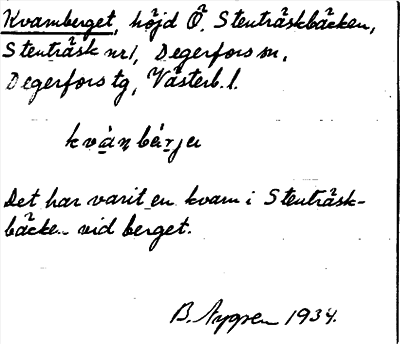 Kvarnberget, höjd Ö. Stenträskbäcken,
Stenträsk nr 1, Degerfors sn,
Degerfors tg, Västerb. l.
kvà̱ṇbær̠je̱
Det har varit en kvarn i Stenträsk-
bäcken vid berget.
B. Nygren 1934.